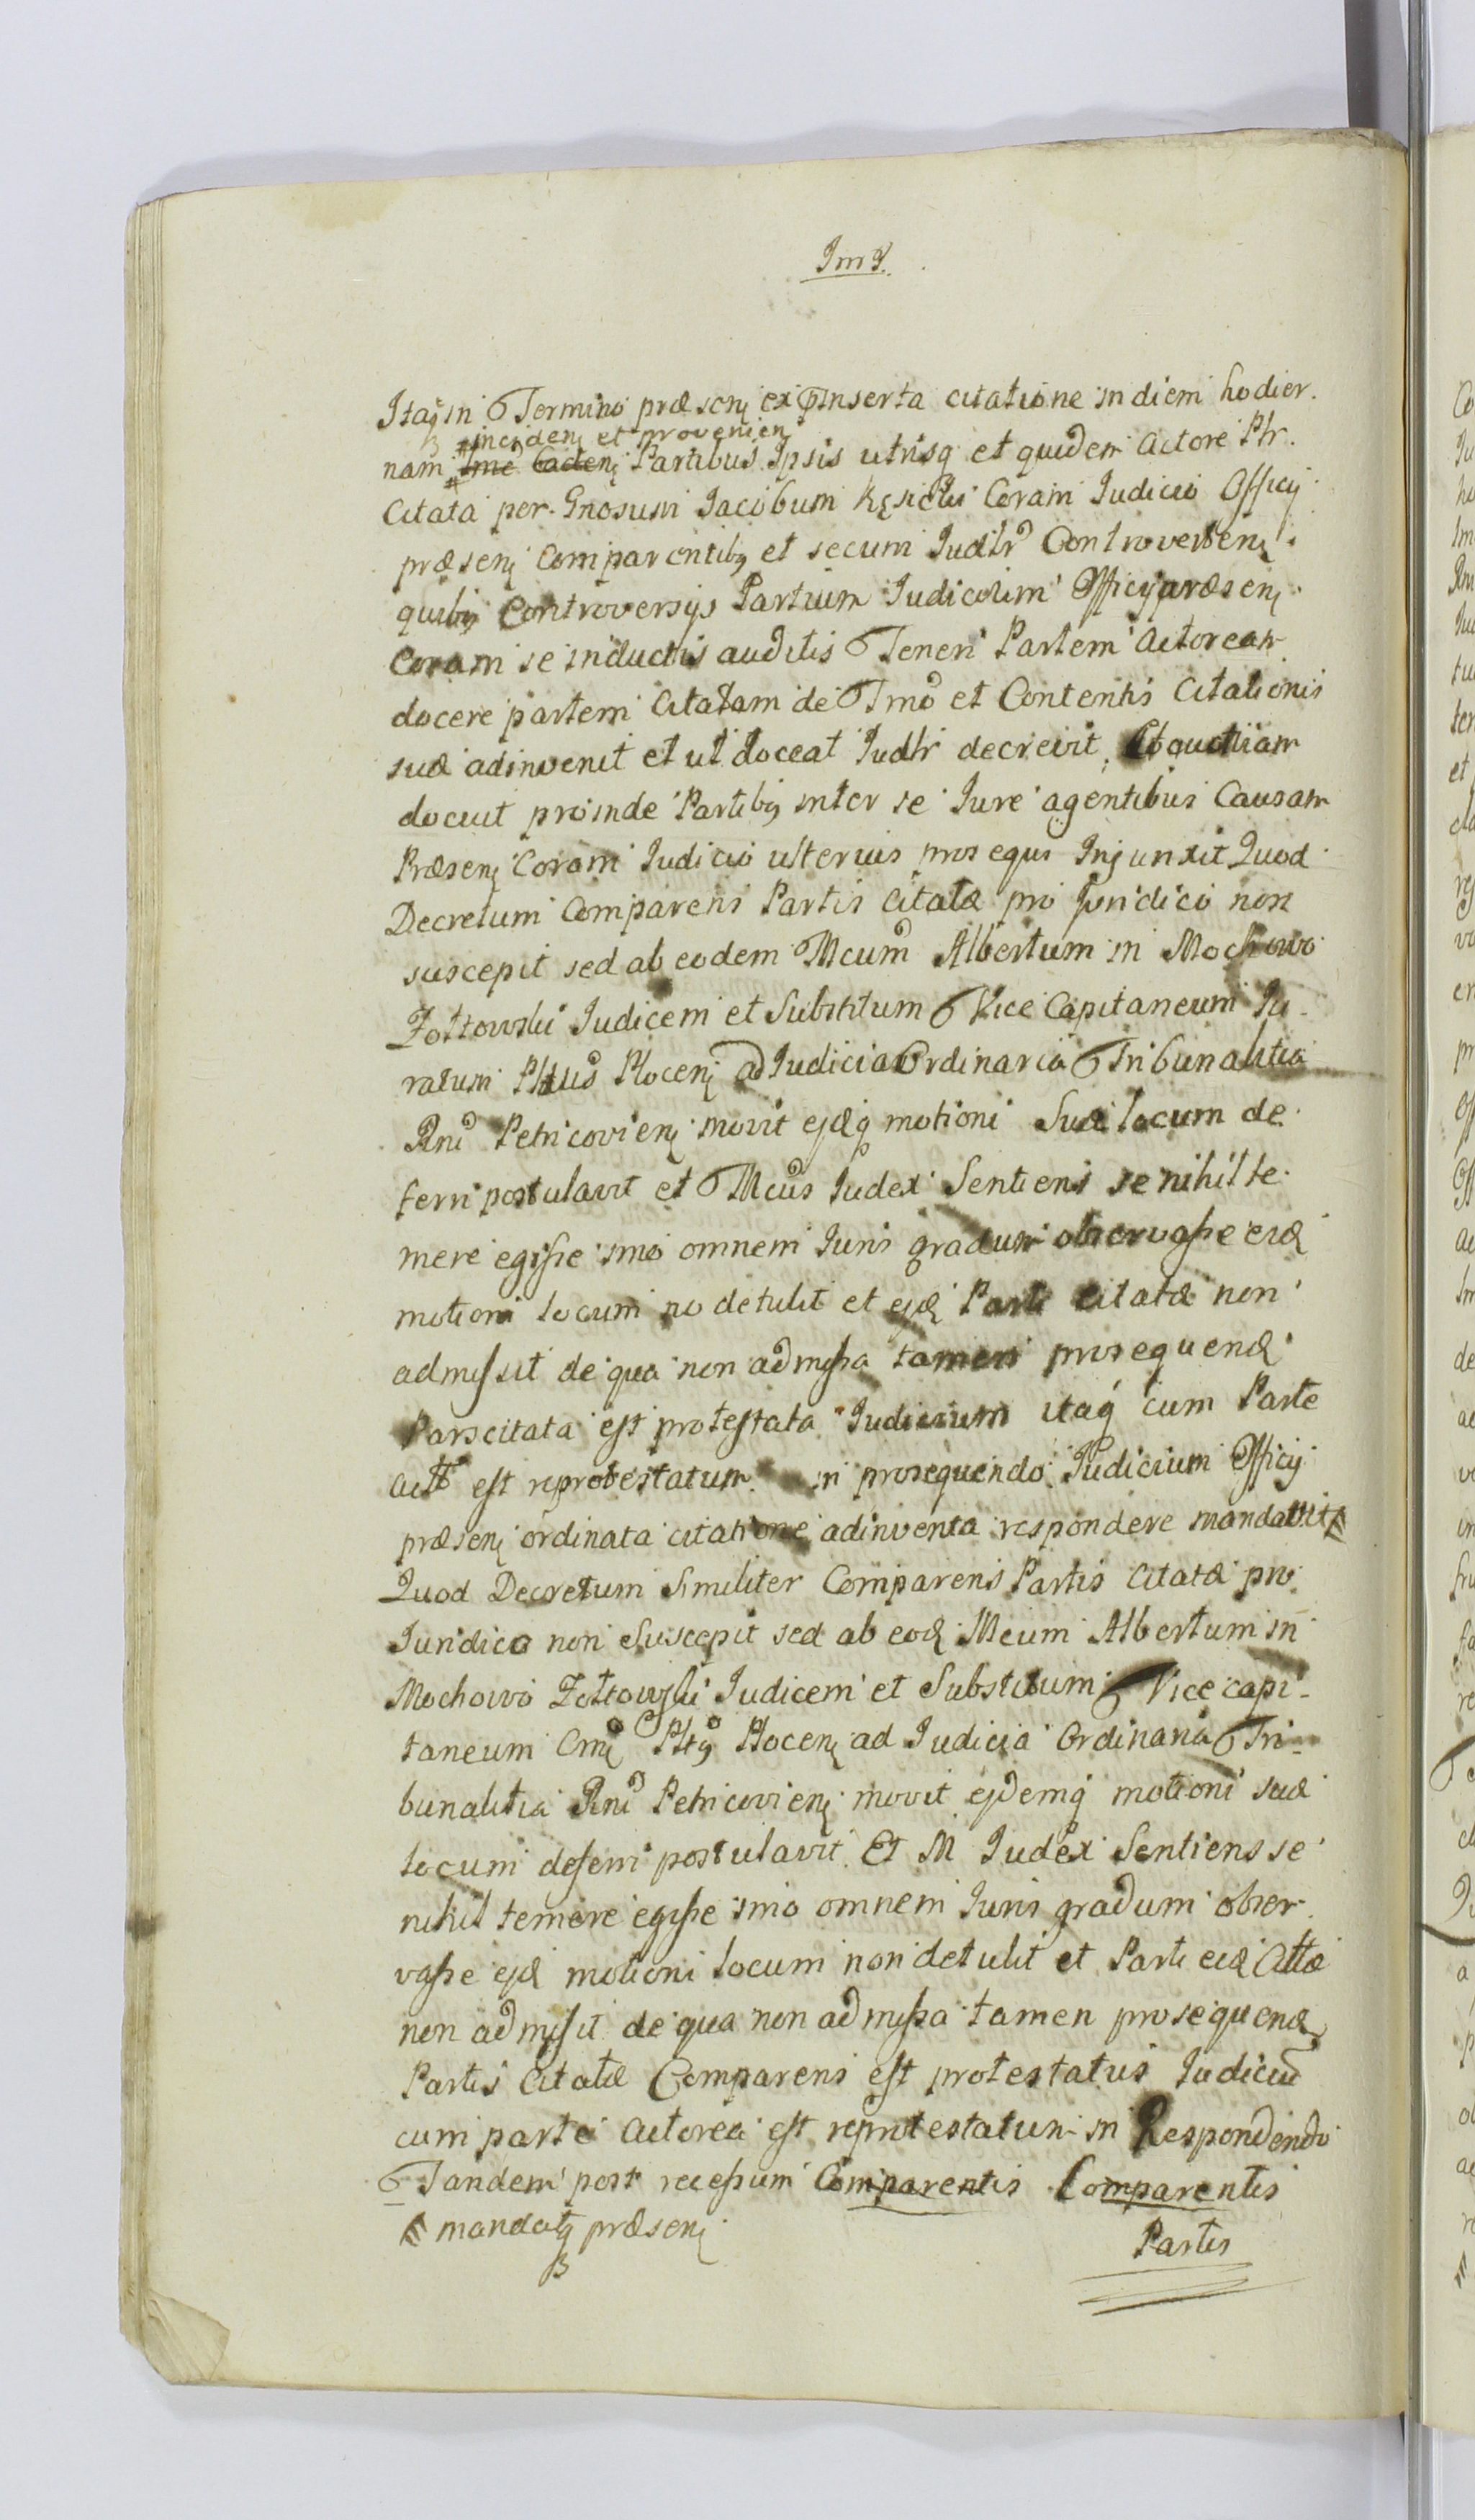 Itaq in Termino præsenj ex Inserta citatione in diem hodier.
incidenj et provenienj
nam Partibus Ipsis utrisq et quidem Actore Ptr.
Citata per Gnosum Jacobum Kęsicki Coram Judicio Officij
præsenj Comparentibq et secum Judtr Controvertenj.
quibq Controversijs Partium Judicium Officij præsenj
Coram se inductis auditis Teneri Partem Actoream
docere partem Citatam de Tmo et Contentis Citationis
suæ adinvenit et ut doceat Judtr decrevit. Et quoniam
docuit proinde Partibq inter se Jure agentibus Causam
Præsenj Coram Judicio ulterius prosequi Injunxit Quod
Decretum Comparens Partis Citatæ pro Juridico non
suscepit sed ab eodem Mcum Albertum in Mochowo
Zołtowski Judicem et Substitutum Vice Capitaneum Ju-
ratum Plocenj ad Judicia Ordinaria Tribunalitia
Rni Petricovienj movit ejdq motioni Suæ locum de
ferri postulavit et Mcus Judex Sentiens se nihil te
mere egisse imo omnem Juris gradum observasse eid
motioni locum no detulit et ejd Parti citatæ non
admissit de qua non admissa tamen prosequend
Pars citata est protestata Judicium itaq cum Parte
Actt est reprotestatum in prosequendo Judicium Officij
præsenj ordinata citatione adinventa respondere mandavit
Quod Decretum Similiter Comparens Partis Citatæ pro
Juridico non Suscepit sed ab eod Mcum Albertum in
Mochowo Zołtowski Judicem et Substitutum Vice capi-
taneum Cmj Pltq Plocenj ad Judicia Ordinaria Tri-
bunalitia Rni Petricovienj movit ejdemq motioni suæ
locum deferri postulavit. Et M Judex Sentiens se
nihil temere egisse imo omnem Juris gradum obser-
vasse ejd motioni locum non detulit et Parti eid Cittæ
non admisit de qua non admissa tamen prosequend
Partis Citatæ Comparens est protestatus Judiciu
cum parte Actorea est reprotestatum in Respondendo
Tandem post recessum Comparentis Comparentis
mandatq præsenj
Partis